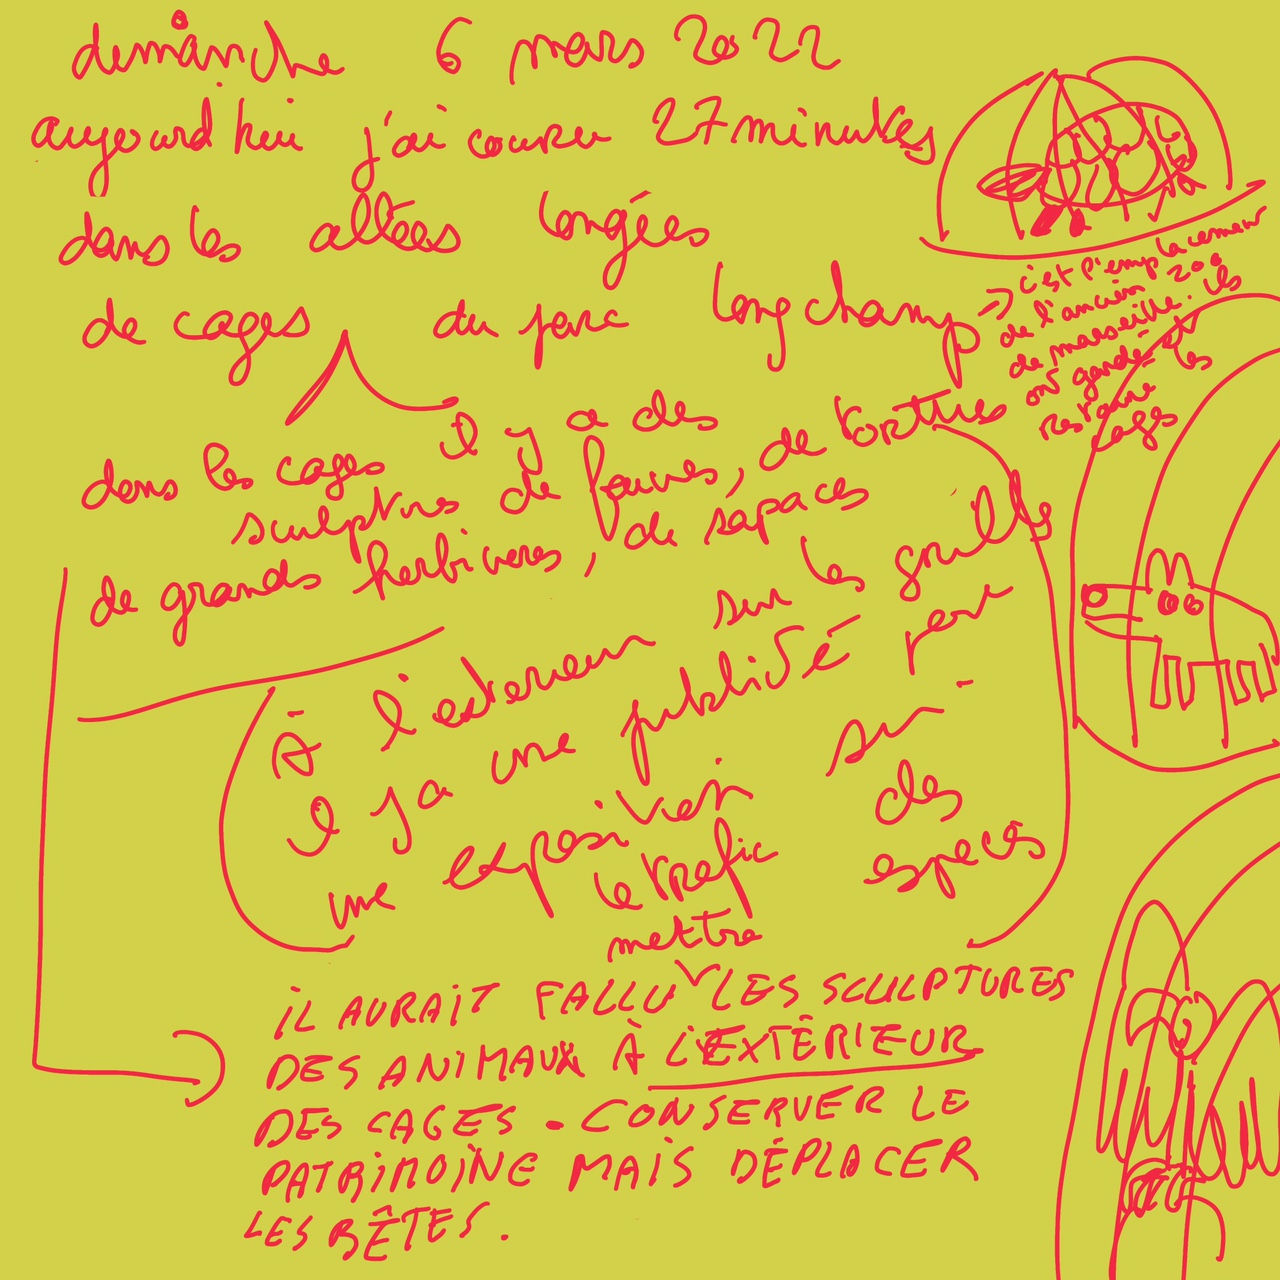 demanche 6 mars 2022
aujourd'hui j'ai couru 27 minutes
dans les allées longées
de cages du parc longchamp
→ c'est l'emplacement
de l'ancien zoo
de marseille. ils
ont gardé et
restauré les
cages
dans les cages il y a des
sculptures de fauves, de tortues
de grands herbivores, de rapaces
À l'exterieur sur les grilles
il y a une publicité pour
une exposition sur
le trafic des
especes
IL AURAIT FALLU mettre LES SCULPTURES
DES ANIMAUX À L'EXTÉRIEUR
DES CAGES. CONSERVER LE
PATRIMOINE MAIS DÉPLACER
LES BÊTES.